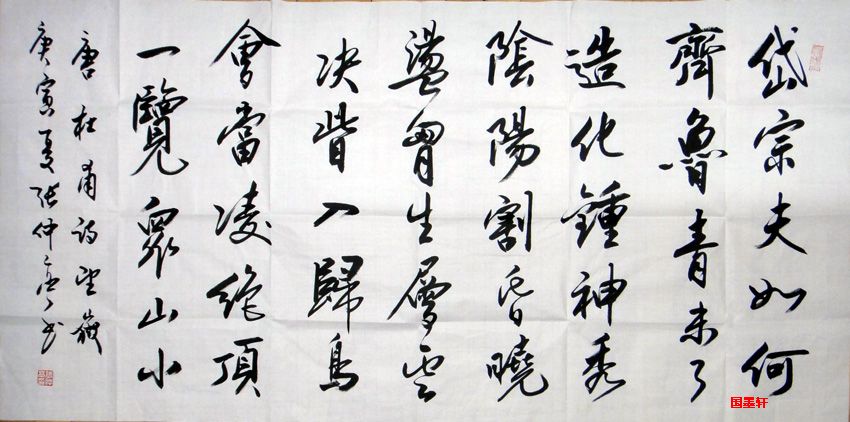 岱宗夫如何
齊魯青未了
造化鍾神秀
陰陽割昏曉
盪胷生層云
决眥入歸鳥
會當凌絶頂
一覽眾山小
唐杜甫诗望嶽
庚寅夏張仲亭书
国墨轩